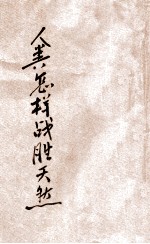 人类怎样战胜天然